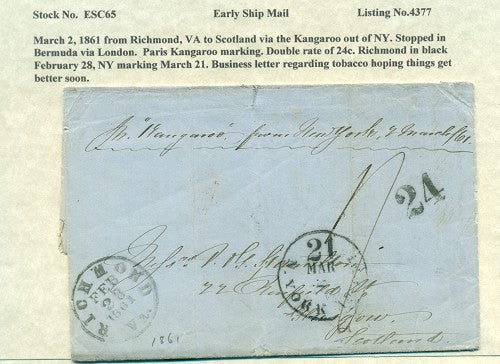 Stock No. ESC65 Early Ship Mail Listing No.4377
March 2, 1861 from Richmond, VA to Scotland via the Kangaroo out of NY. Stopped in
Bermuda via London. Paris Kangaroo marking. Double rate of 24c. Richmond in black
February 28, NY marking March 21. Business letter regarding tobacco hoping things get
better soon.
Pr. "Kangaroo" from New York, 2 March/61.
24
21
MAR
YORK
RICHMOND Va.
FEB
28
1861
Glasgow
Scotland.
1861